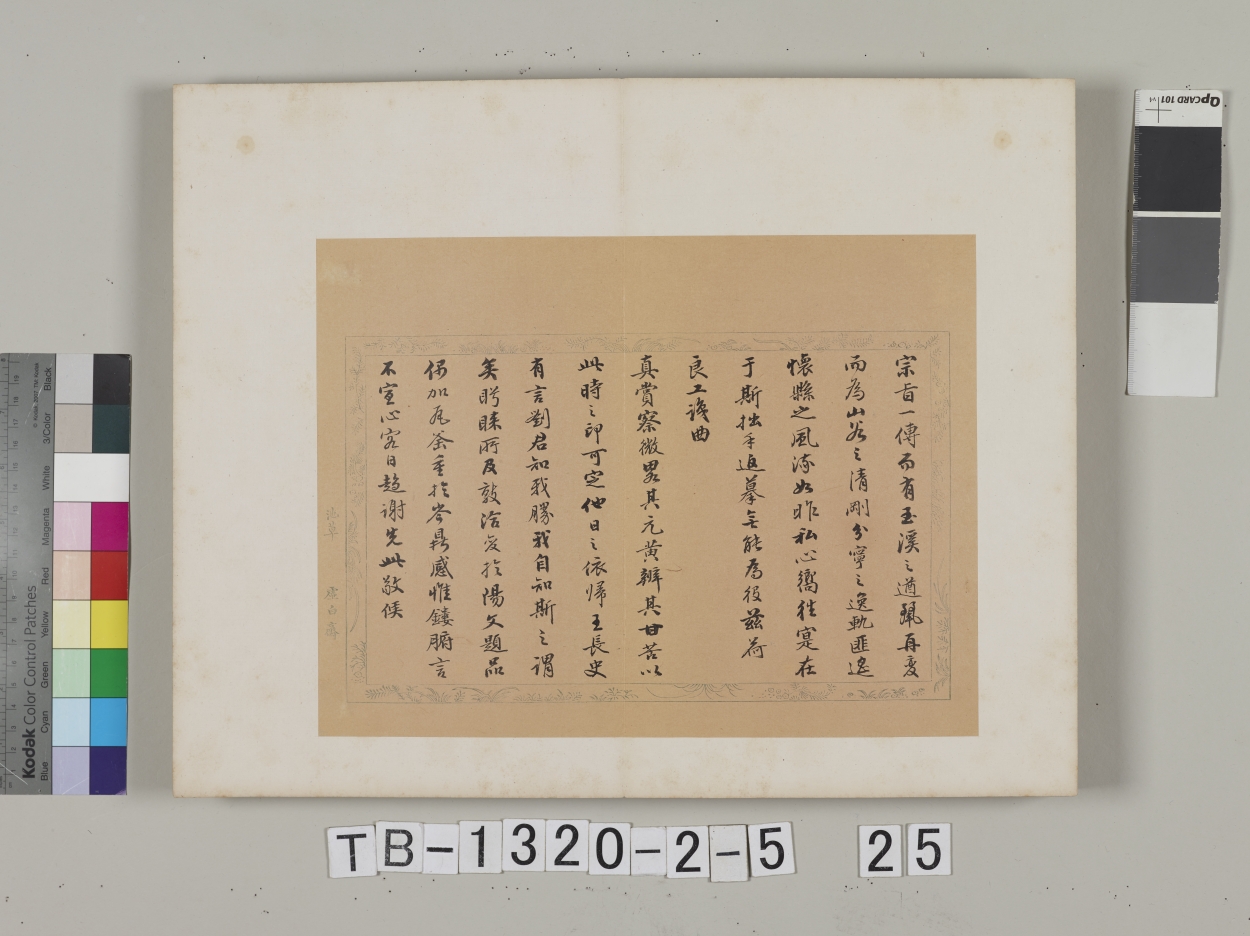 宗旨一傳而有玉溪之遒珮再變
而為山谷之清剛分寧之逸軌匪遙
懷縣之風流如昨私心嚮往寔在
于斯拙手追摹無能為役茲荷
良工謏曲
真賞察微畧其元黃辨其甘苦以
此時之印可定他日之依歸王長史
有言劉君知我勝我自知斯之謂
矣盻睞所及敦洽友於陽文題品
偶加瓦釜重於岑鼎感惟鏤腑言
不宣心容日趨謝先此敬候
Kodak Color Control Patches
© Kodak, 2007 TM: Kodak
Blue
Cyan
Green
Yellow
Red
Magenta
White
3/Color
Black
QPCARD 101
TB-1320-2-5 25